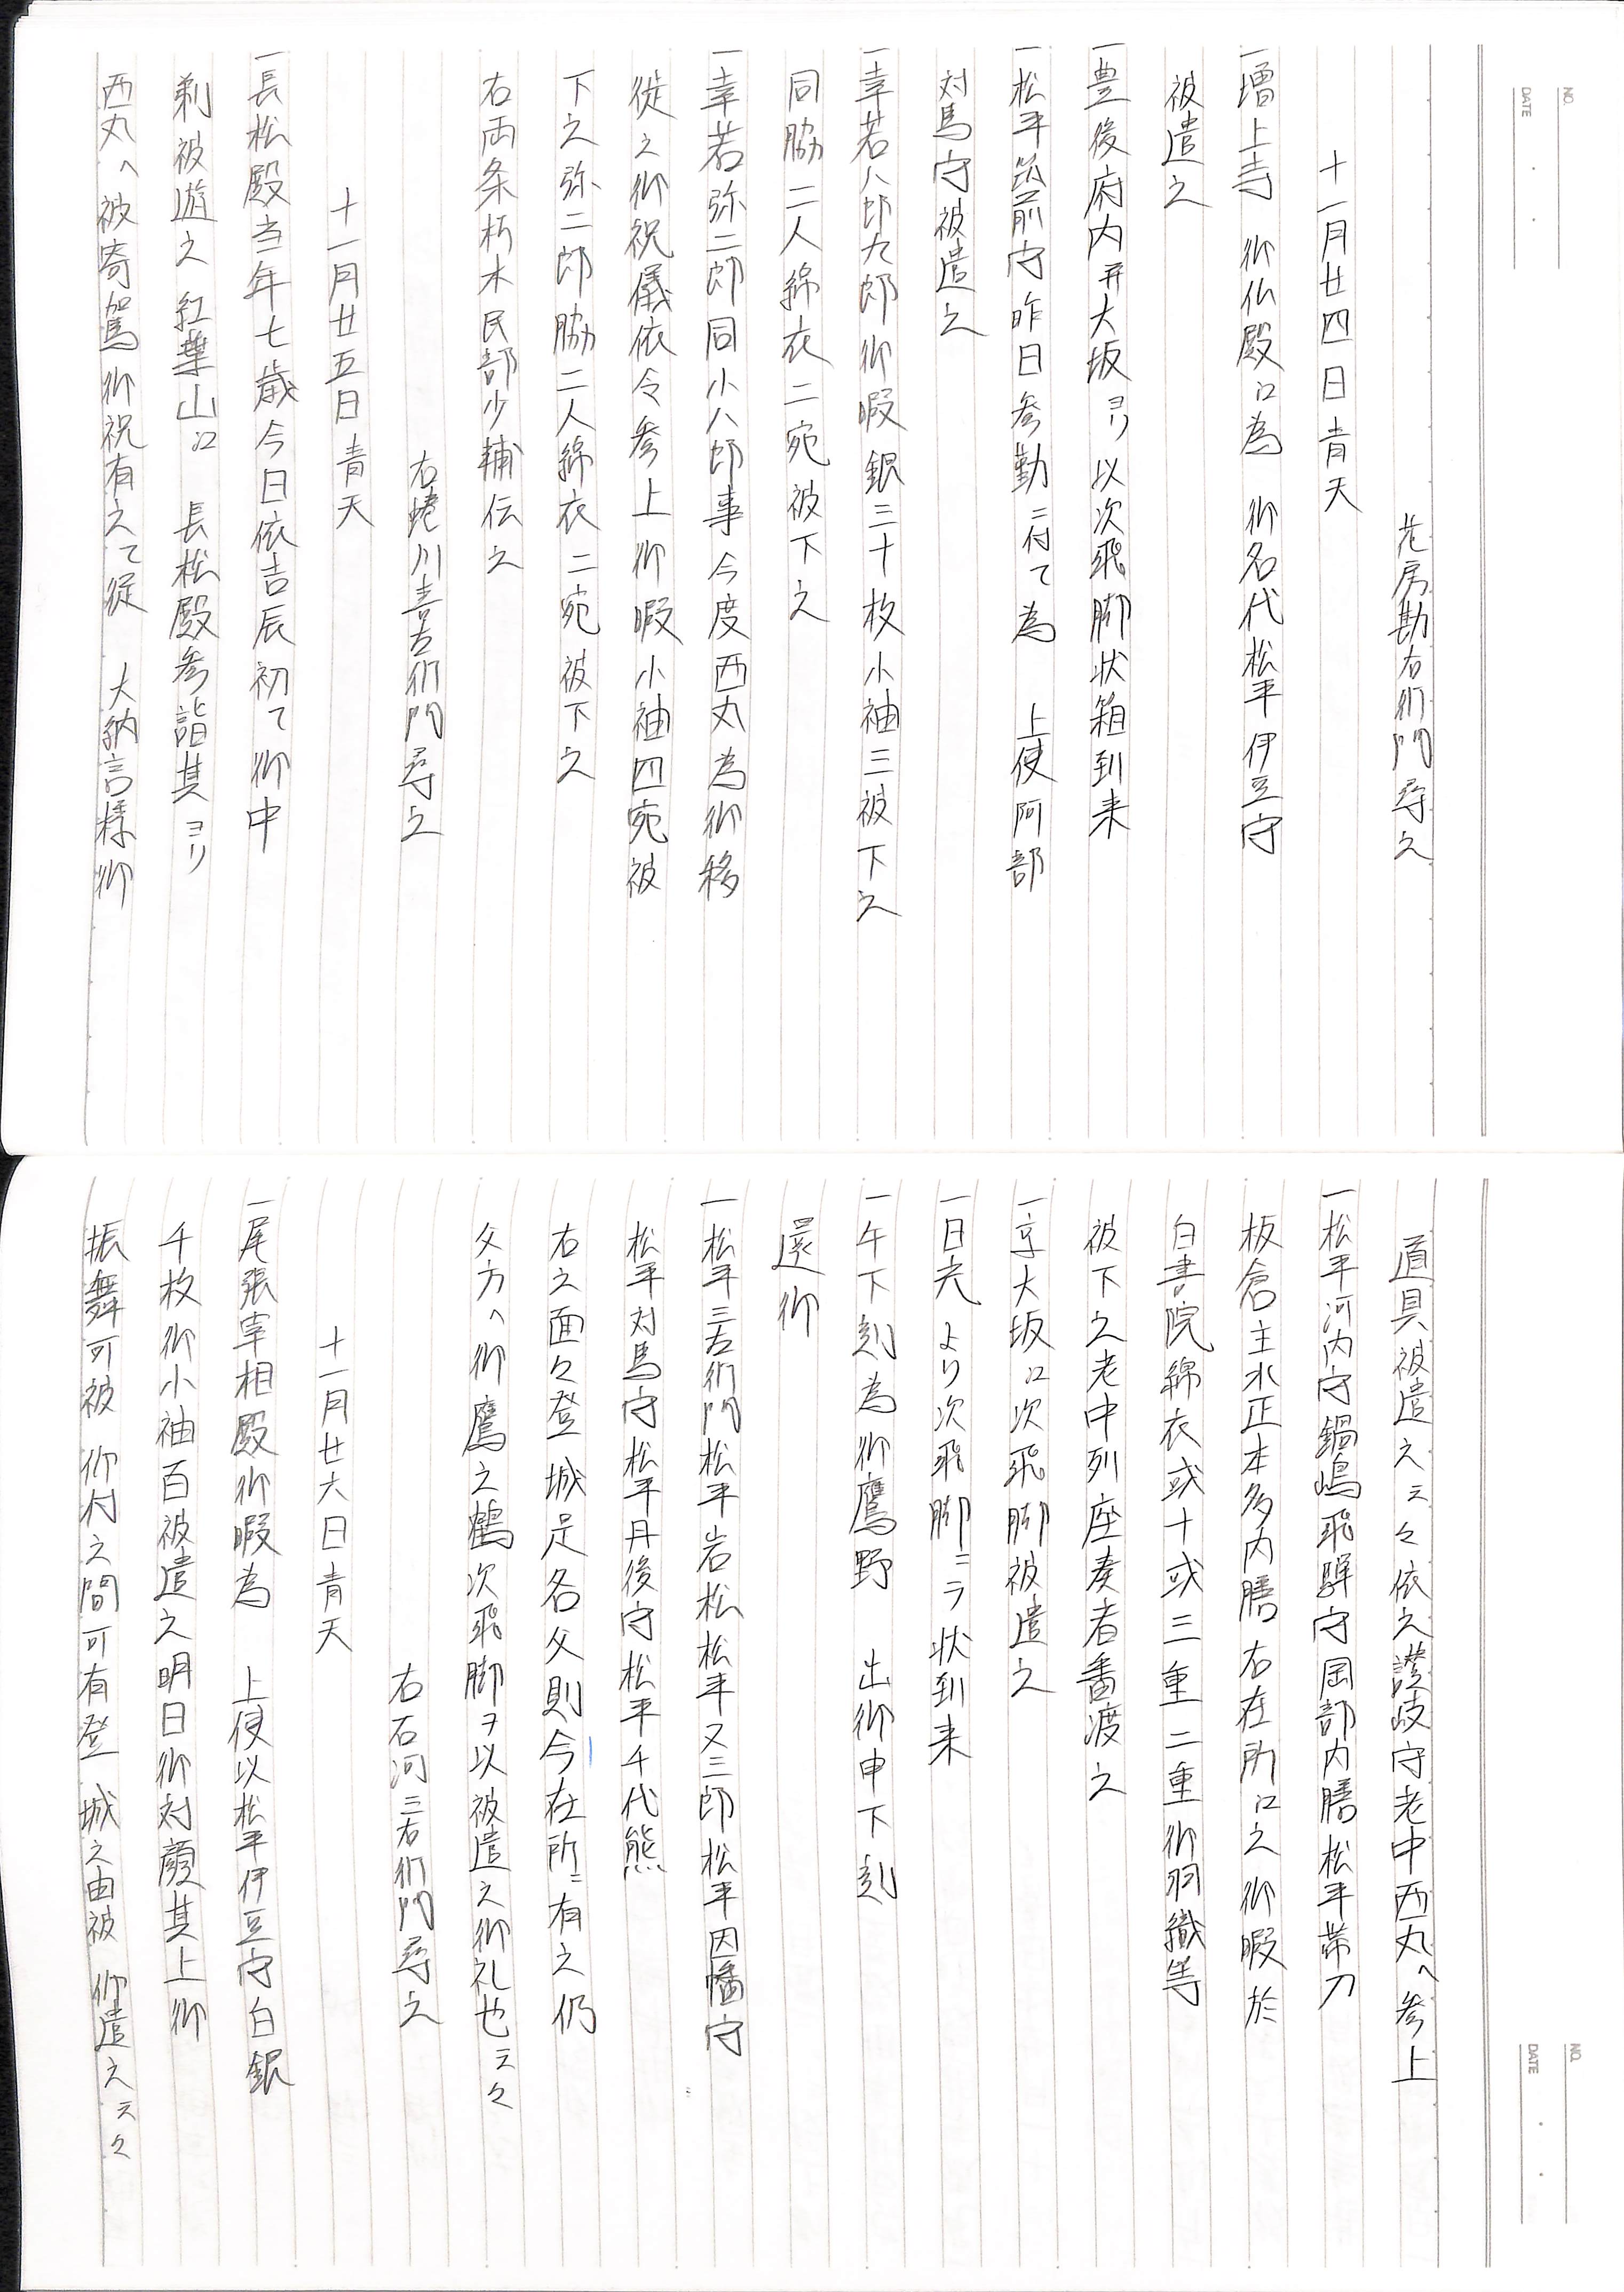 花房勘右衛門尋之
十一月廿四日青天
一増上寺 御仏殿江為 御名代松平伊豆守
被遣之
一豊後府内并大坂ヨリ以次飛脚状箱到来
一松平筑前守昨日参勤ニ付て為 上使阿部
対馬守被遣之
一幸若八郎九郎御暇銀三十枚小袖三被下之
同脇二人綿衣二宛被下之
一幸若弥二郎同小八郎事今度西丸為御移
徙之御祝儀依令参上御暇小袖四宛被
下之弥二郎脇二人綿衣二宛被下之
右両条朽木民部少輔伝之
右蜷川喜右衛門尋之
十一月廿五日青天
一長松殿当年七歳今日依吉辰初て御中
剃被遊之 紅葉山江 長松殿参詣其ヨリ
西丸へ被寄駕御祝有之て従 大納言様御
道具被遣之云々依之讃岐守老中西丸へ参上
一松平河内守鍋嶋飛騨守岡部内膳松平帯刀
板倉主水正本多内膳右在所江之御暇於
白書院綿衣或十或三重二重御羽織等
被下之老中列座奏者番渡之
一京大坂江次飛脚被遣之
一日光より次飛脚ニテ状到来
一午下刻為御鷹野 出御申下刻
還御
一松平三右衛門松平岩松松平又三郎松平因幡守
松平対馬守松平丹後守松平千代熊
右之面々登 城是各父則今在所ニ有之仍
父方へ御鷹之鶴次飛脚ヲ以被遣之御礼也云々
右石河三右衛門尋之
十一月廿六日青天
一尾張宰相殿御暇為 上使以松平伊豆守白銀
千枚御小袖百被遣之明日御対顔其上御
振舞可被 仰付之間可有登 城之由被 仰遣之云々
NO.
DATE
NO.
DATE